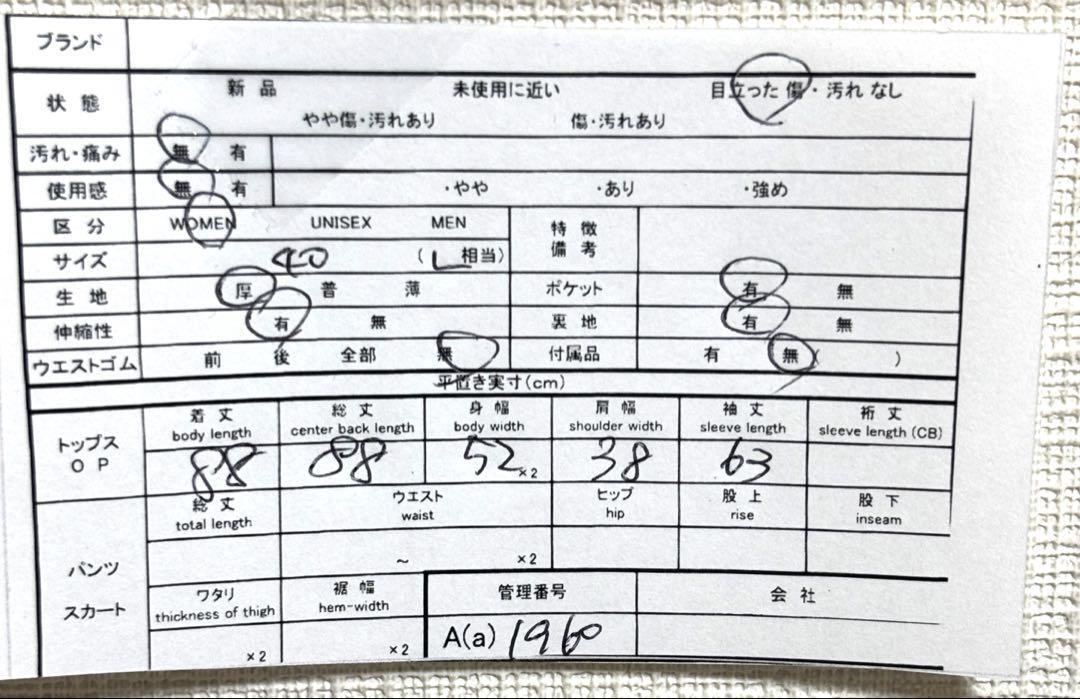 ブランド
状態 新品 未使用に近い 目立った傷・汚れなし
やや傷・汚れあり 傷・汚れあり
汚れ・痛み 無 有
使用感 無 有 ・やや ・あり ・強め
区分 WOMEN UNISEX MEN 特徴
備考
サイズ 40 (L相当)
生地 厚 普 薄 ポケット 有 無
伸縮性 有 無 裏地 有 無
ウエストゴム 前 後 全部 無 付属品 有 無( )
平置き実寸(cm)
着丈 総丈 身幅 肩幅 袖丈 裄丈
body length center back length body width shoulder width sleeve length sleeve length (CB)
トップス
OP
88 88 52 ×2 38 63
総丈 ウエスト ヒップ 股上 股下
total length waist hip rise inseam
パンツ
スカート
~ ×2
ワタリ 裾幅 管理番号 会社
thickness of thigh hem-width
×2 ×2 A(a) 1960